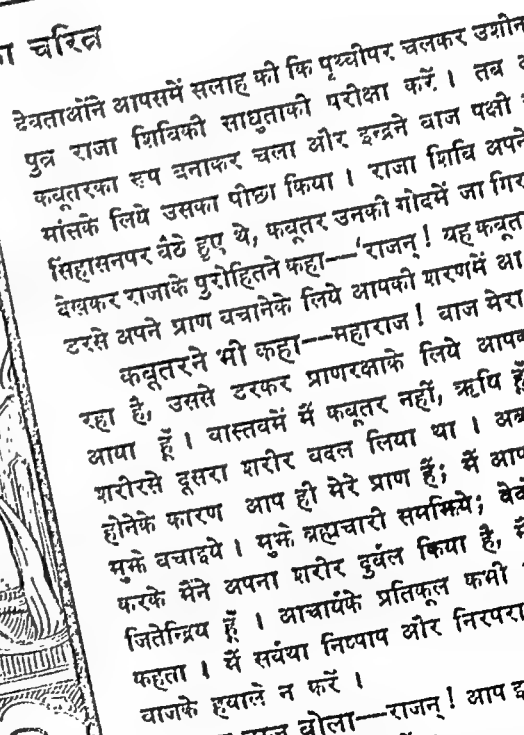 चरित्र
देवताओंने आपसमें सलाह की कि पृथ्वीपर चलकर उशीन
पुत्र राजा शिविकी साधुताकी परीक्षा करें । तब
कबूतरका रूप बनाकर चला और इन्द्रने बाज पक्षी
मांसके लिये उसका पीछा किया । राजा शिवि अपने
सिंहासनपर बैठे हुए थे, कबूतर उनकी गोदमें जा गिर
देखकर राजाके पुरोहितने कहा—'राजन् ! यह कबूत
डरसे अपने प्राण बचानेके लिये आपकी शरणमें आ
कबूतरने भी कहा—महाराज ! बाज मेरा
रहा है, उससे डरकर प्राणरक्षाके लिये आपक
आया हूँ । वास्तवमें मैं कबूतर नहीं, ऋषि हूँ
शरीरसे दूसरा शरीर बदल लिया था । अब
होनेके कारण आप ही मेरे प्राण हैं; मैं आप
मुझे बचाइये । मुझे ब्रह्मचारी समझिये; वेद
करके मैंने अपना शरीर दुर्बल किया है, मैं
जितेन्द्रिय हूँ । आचार्यके प्रतिकूल कभी
कहता । मैं सर्वथा निष्पाप और निरपरा
बाजके हवाले न करें ।
बोला—राजन् ! आप इ